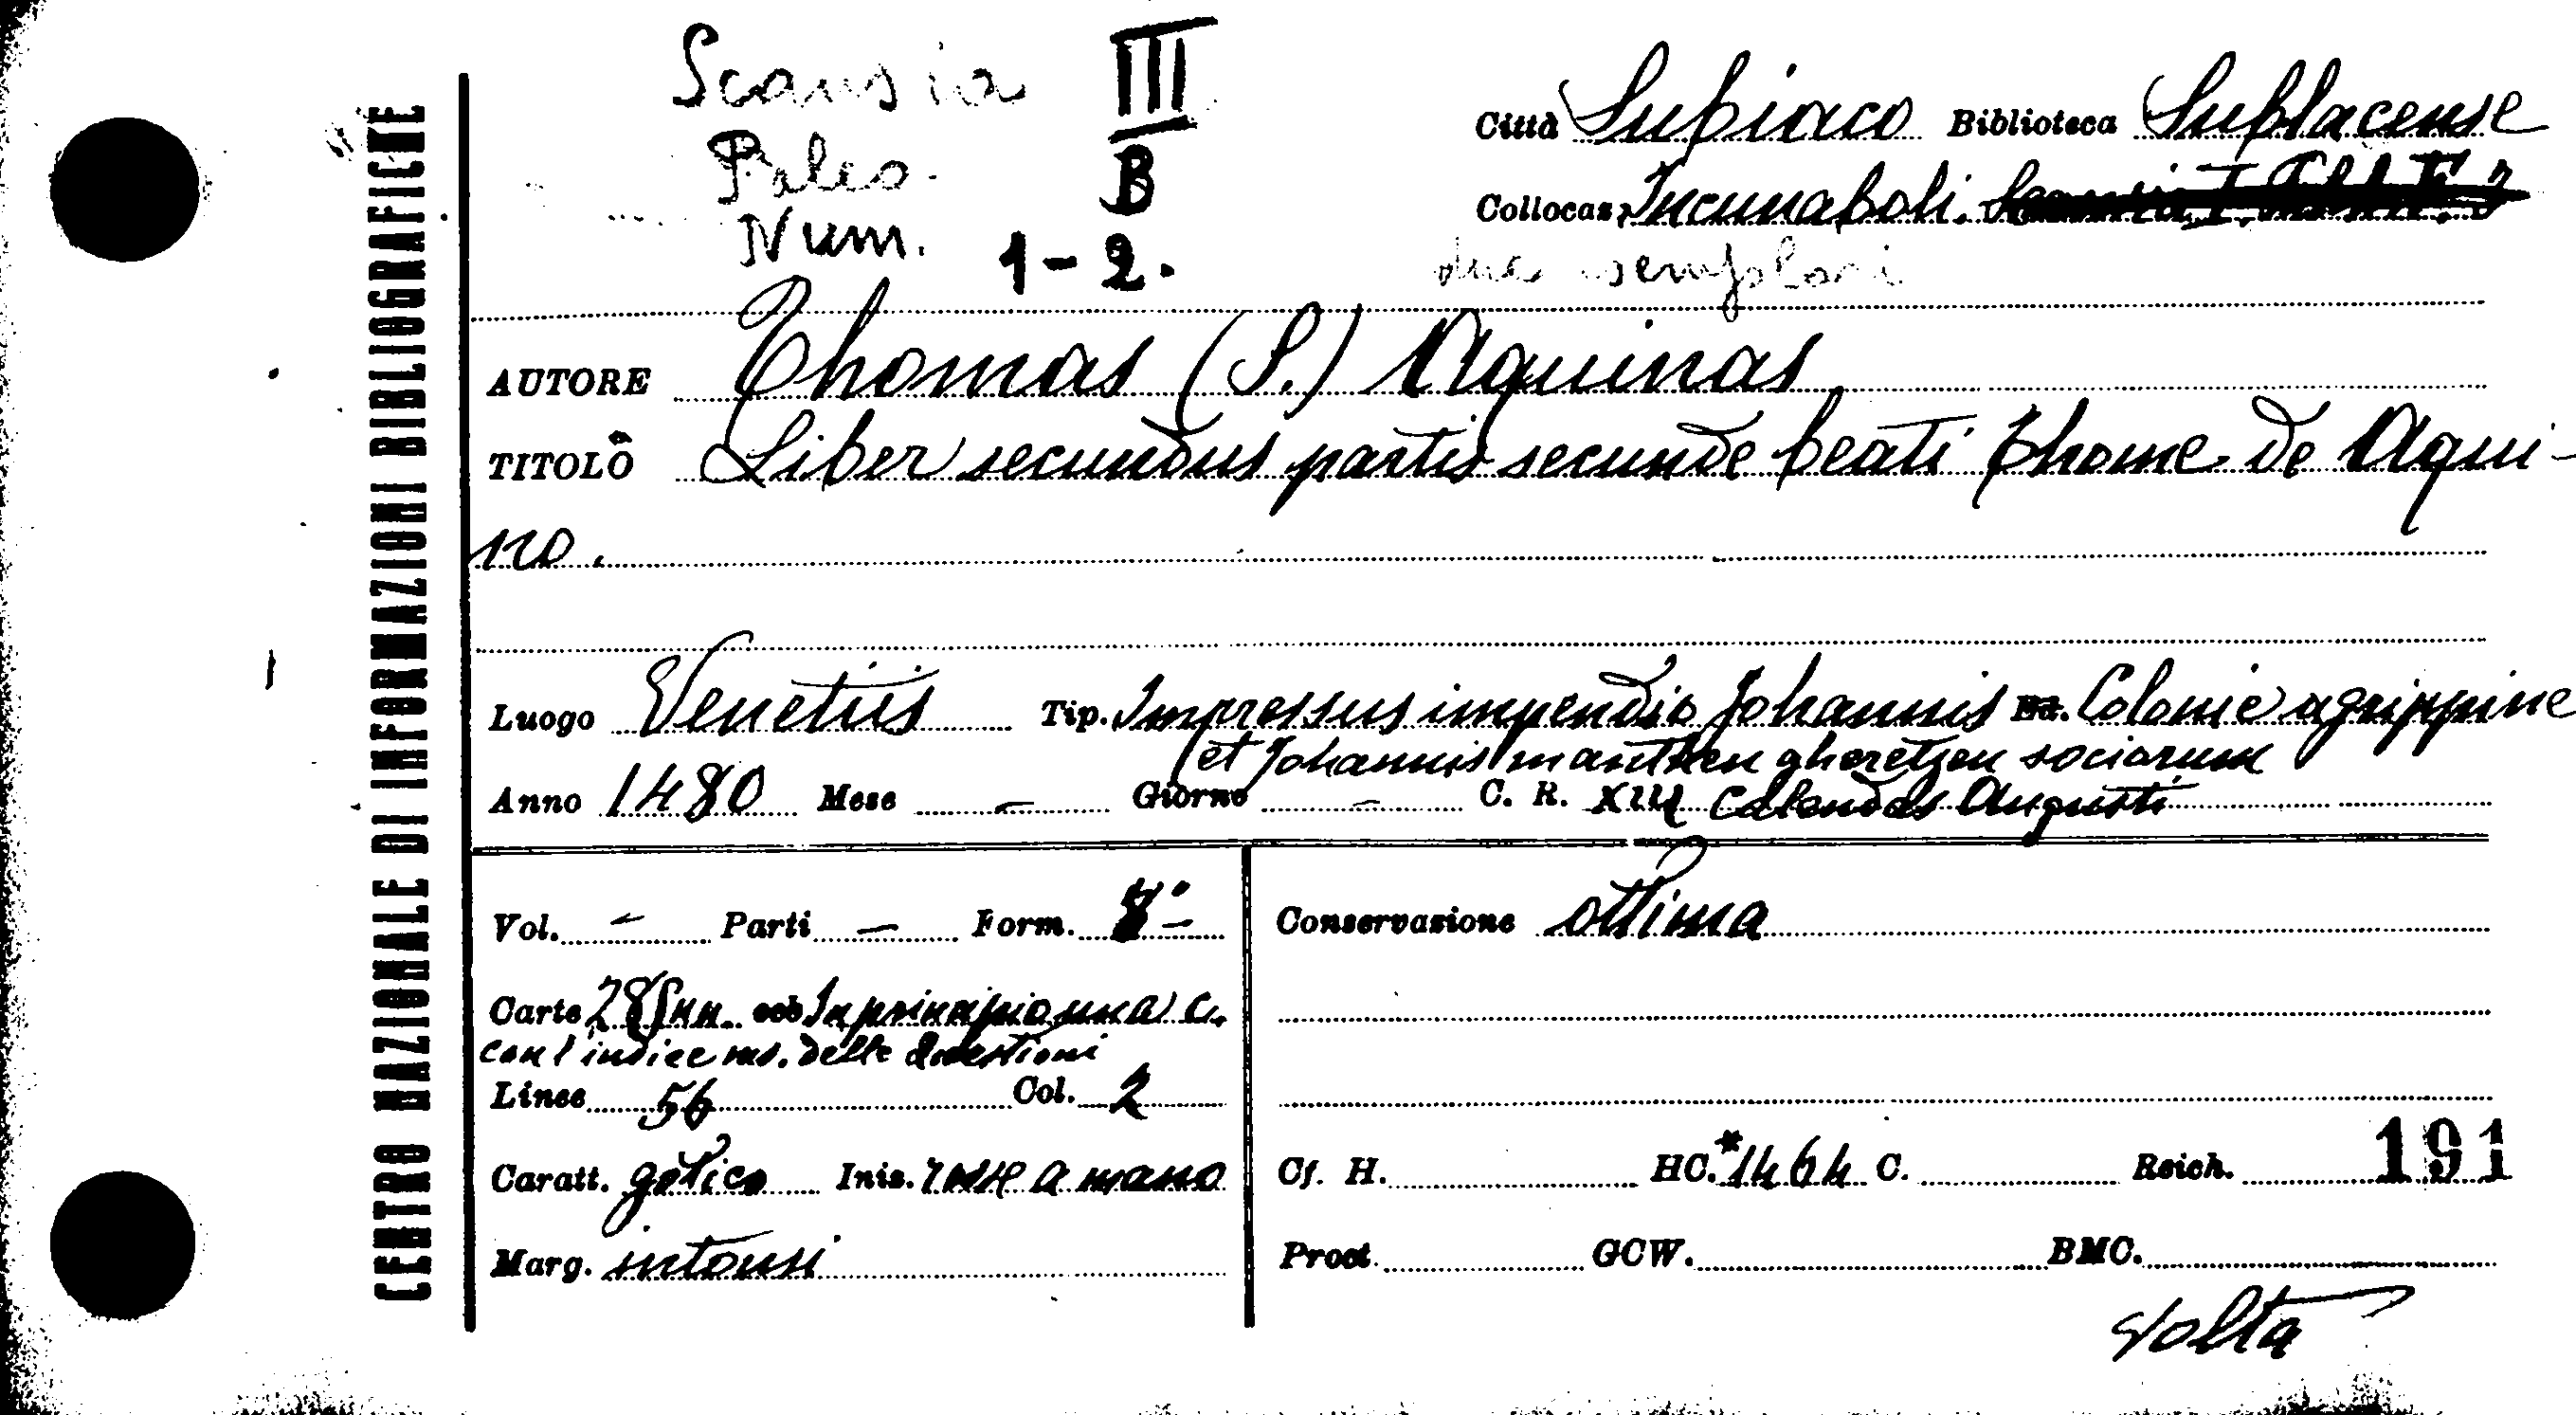 CENTRO NAZIONALE DI INFORMAZIONI BIBLIOGRAFICHE
Scansia III
Palco. B
Num. 1-2.
Città Subiaco Biblioteca Sublacense
Collocaz. Incunaboli.
due esemplari
AUTORE Thomas (S.) Aquinas
TITOLO Liber secundus partis secunde beati Thome de Aqui-
no.
Luogo Venetiis Tip. Impressus impendio Johannis Colonie agrippine
et Johannis manthen gheretzen sociorum
Anno 1480 Mese — Giorno — C. R. XIII Calendas Augusti
Vol. — Parti — Form.
Carte 285 nn. In principio una c.
con l'indice ms. delle questioni
Linee 56 Col. 2
Caratt. gotico Iniz. rosse a mano
Marg. intonsi
Conservazione ottima
Cf. H. HC. *1464 C. Reich. 191
Proct. GCW. BMC.
Volta